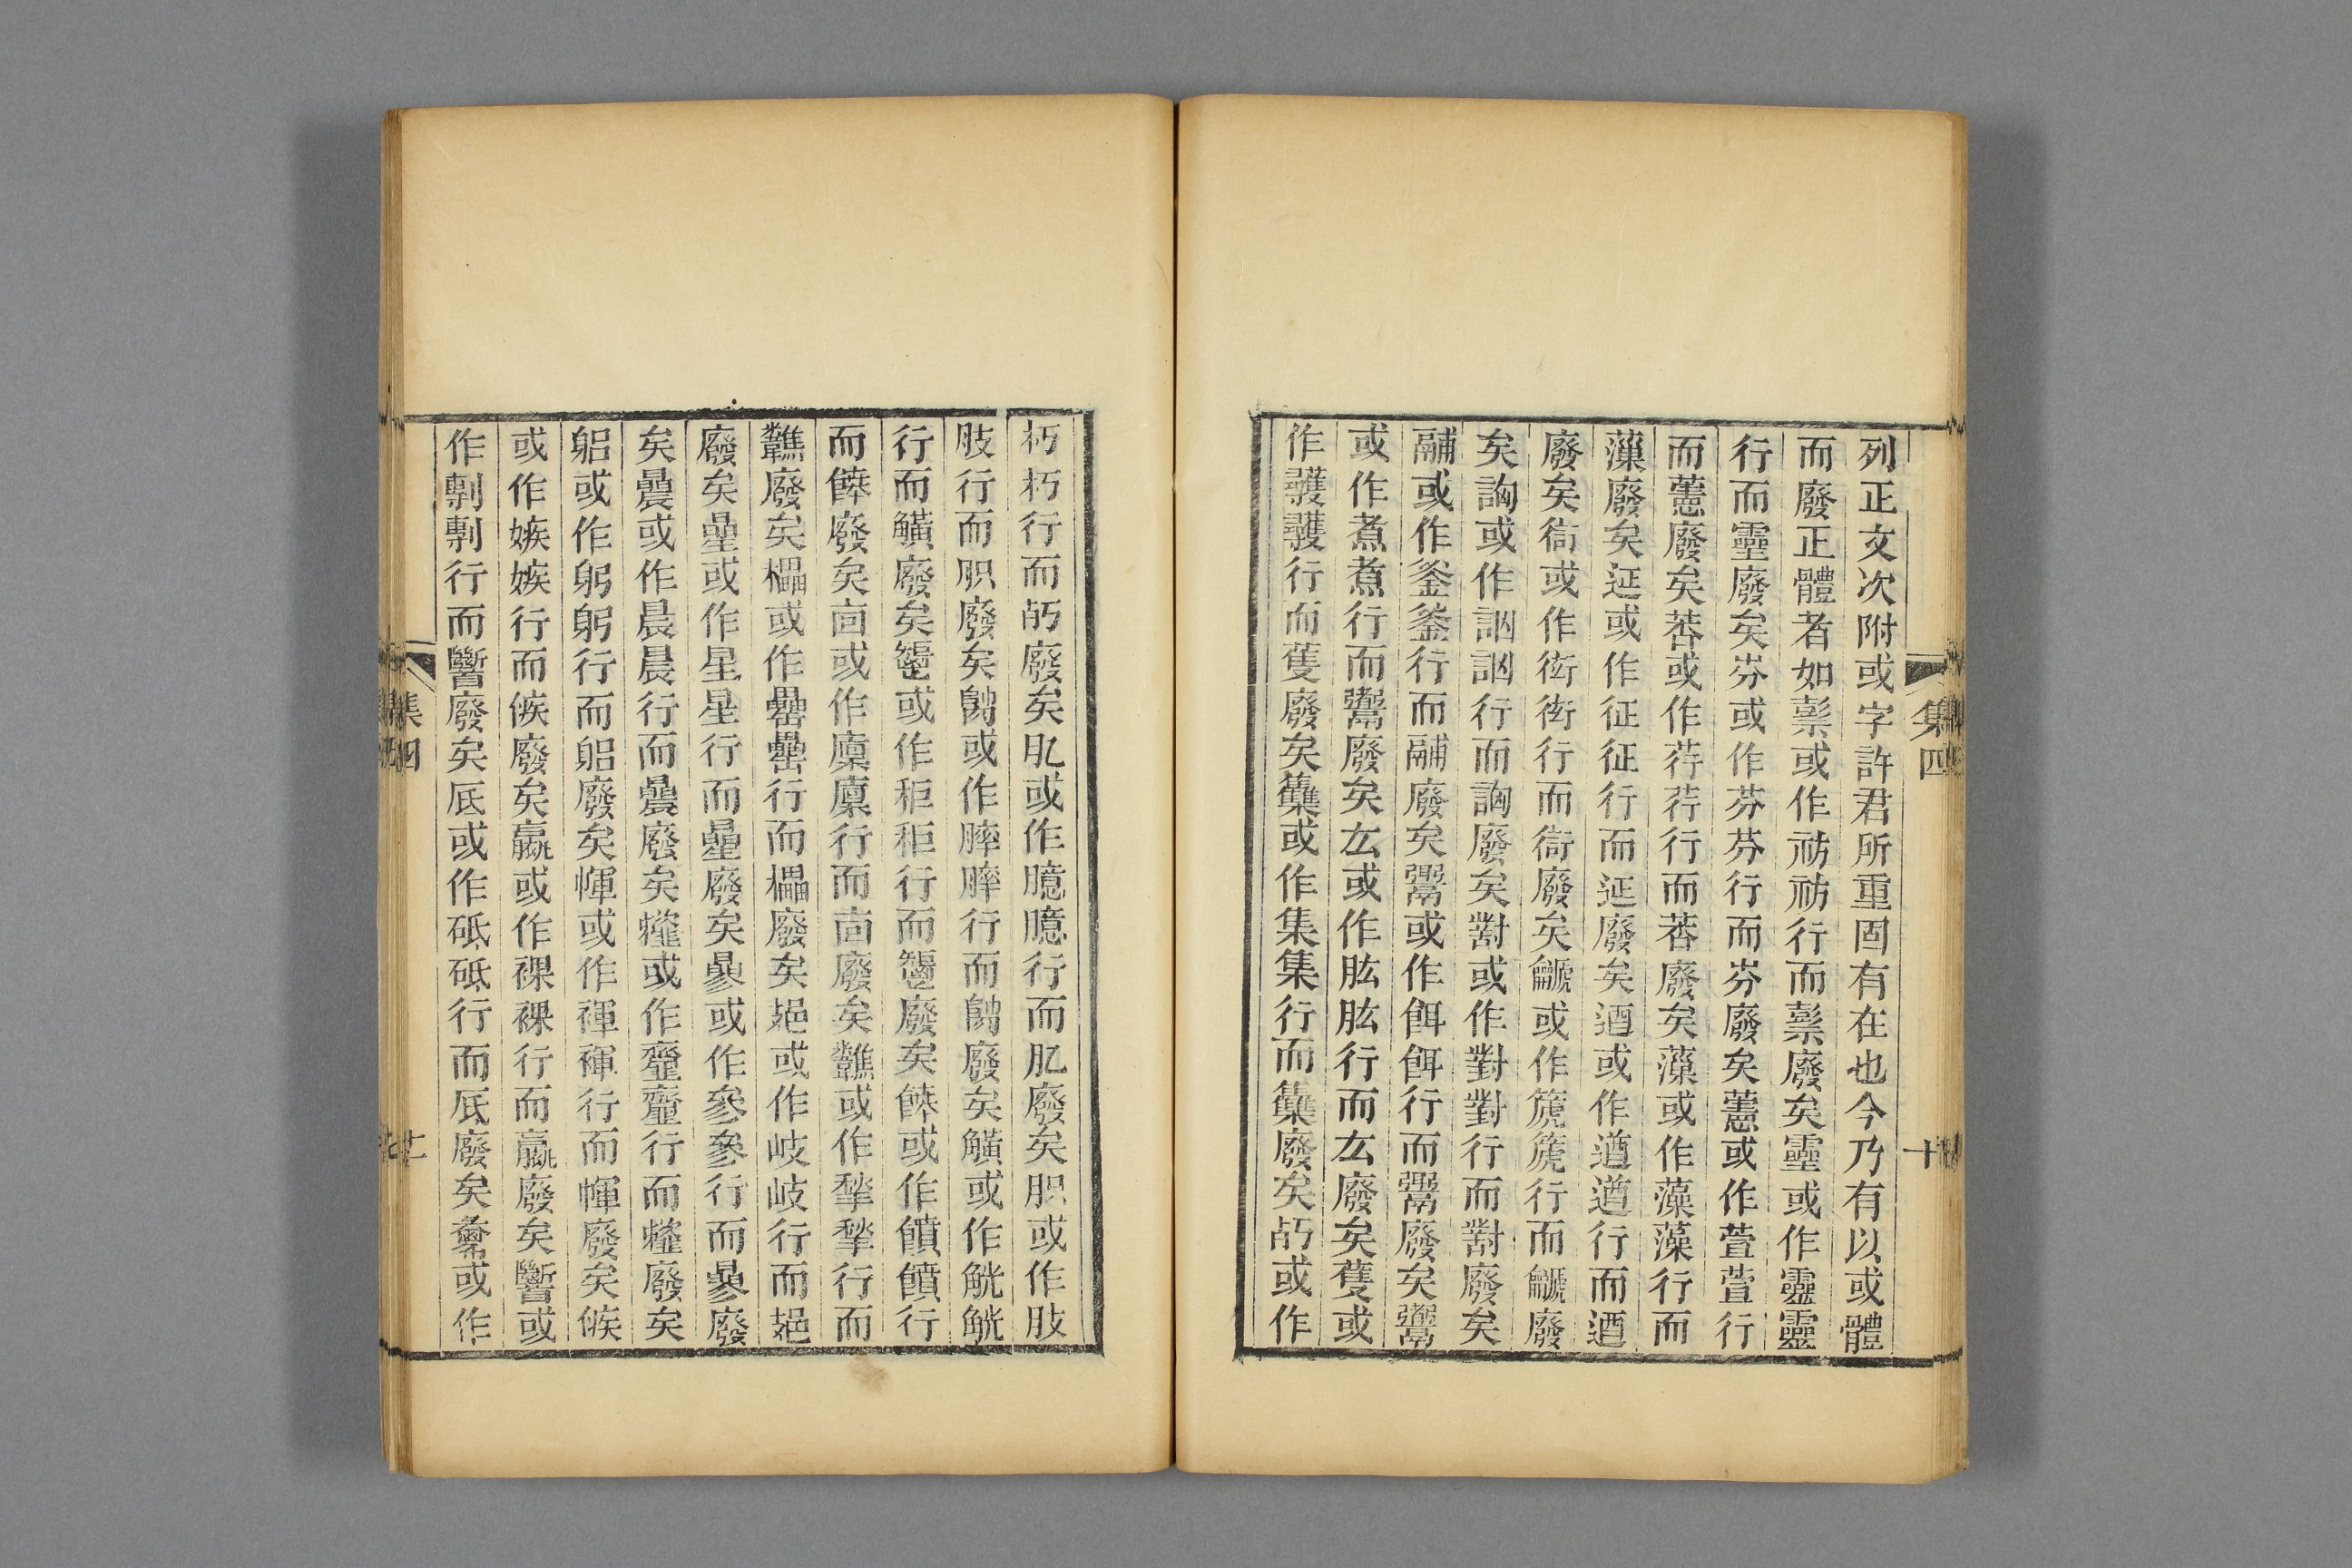 列正文次附或字許君所重固有在也今乃有以或體
而廢正體者如鬃或作祊祊行而鬃廢矣靈或作靈靈
行而靈廢矣芬或作芬芬行而芬廢矣藼或作萱萱行
而藼廢矣莕或作荇荇行而莕廢矣薻或作藻藻行而
薻廢矣延或作征征行而延廢矣逎或作遒遒行而逎
廢矣衒或作衒行而廢矣或作篪篪行而廢
矣訩或作訩行而訩廢矣對或作對對行而對廢矣
䰞或作釜釜行而䰞廢矣䰞或作餌餌行而廢矣鬻
或作煮煮行而鬻廢矣厷或作肱肱行而厷廢矣隻或
作彠彠行而隻廢矣雧或作集集行而雧廢矣歺或作
朽朽行而歺廢矣肊或作臆臆行而肊廢矣胑或作肢
肢行而胑廢矣或作膟膟行而廢矣觵或作觥觥
行而觵廢矣或作秬秬行而廢矣餴或作饙饙行
而餴廢矣㐭或作廩廩行而㐭廢矣或作揫揫行而
廢矣櫑或作罍罍行而櫑廢矣𨙸或作岐岐行而𨙸
廢矣曐或作星星行而曐廢矣曑或作參參行而曑廢
矣曟或作晨晨行而曟廢矣或作齏齏行而廢矣
躳或作躬躬行而躳廢矣㡓或作褌褌行而㡓廢矣㑵
或作嫉嫉行而㑵廢矣臝或作裸裸行而臝廢矣或
作剸剸行而廢矣厎或作砥砥行而厎廢矣或作
集四
十
集四